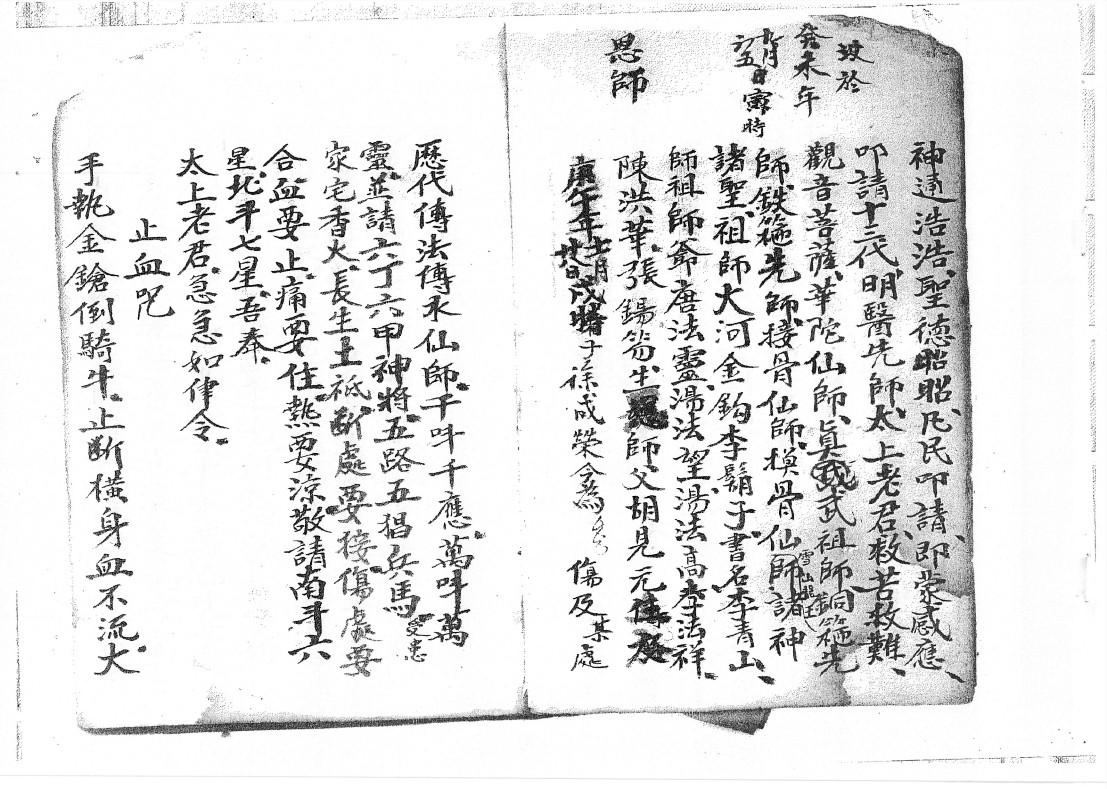 故於
癸未年
九月
十五日寅時
恩師
神通浩浩、聖德昭昭、凡民叩請、即蒙感應、
叩請十三代、明醫先師、太上老君、救苦救難、
觀音菩薩、華陀仙師、眞武祖師、銅箍先
師、鉄箍先師、接骨仙師、摸骨仙師、諸神
雪山龍王
諸聖、祖師大河金鈎李鬍子、書名李青山、
師祖師爺唐法靈、湯法望、湯法高、李法祥、
陳洪華、張錫笏、生 師父胡見元
庚午年七月
廿日戌時
子徐咸榮今為 傷及某處
歷代傳法傳永仙師、千叫千應、萬叫萬
靈、並請六丁六甲神將、五路五猖兵馬、
受患
家宅香火、長生土祗、斷處要接、傷處要
合、血要止、痛要住、熱要涼、敬請南斗六
星、北斗七星、吾奉、
太上老君、急急如律令、
止血咒
手執金鎗倒騎牛、止斷橫身血不流、大